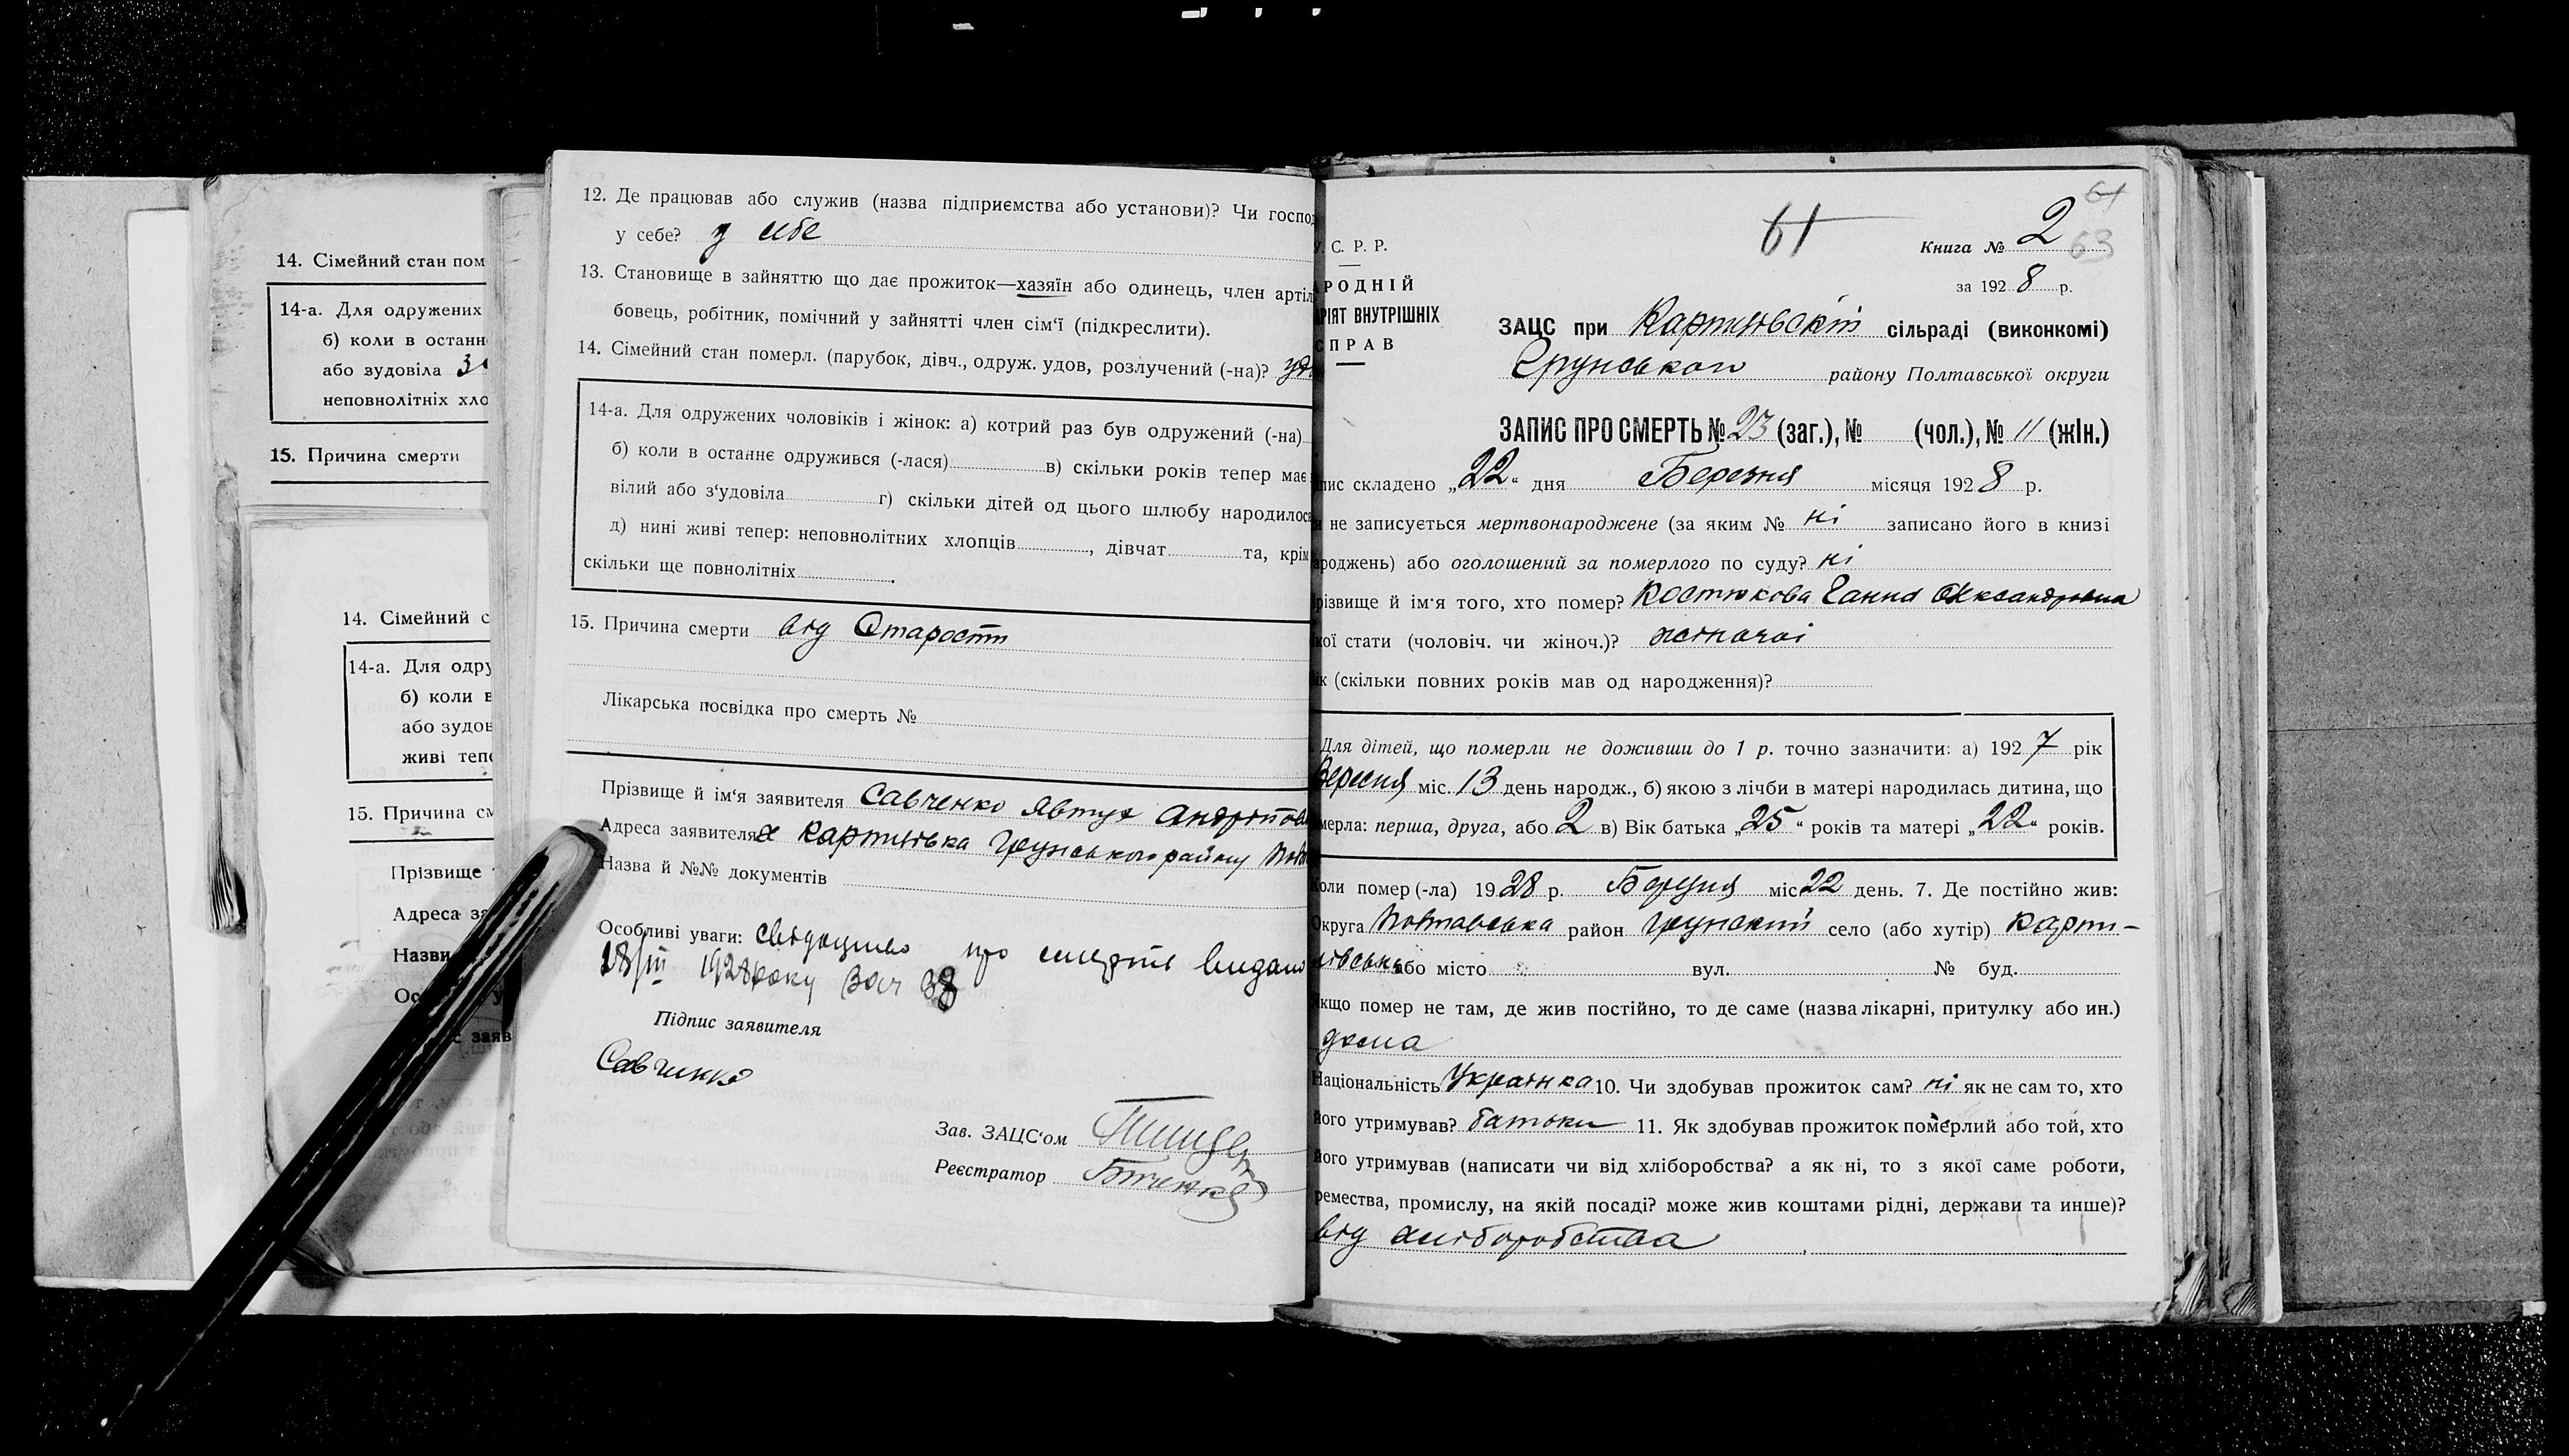 14. Сімейний стан пом
14-а. Для одружених
б) коли в останн
або зудовіла
неповнолітніх хло
15. Причина смерти
14. Сімейний с
14-а. Для одру
б) коли в
або зудов
живі тепе
15. Причина см
Прізвище
Адреса за
Назви
Ос
заяв
12. Де працював або служив (назва підприємства або установи)? Чи господ
у себе? у себе
13. Становище в зайняттю що дає прожиток—хазяїн або одинець, член артіл
бовець, робітник, помічний у зайнятті член сім'ї (підкреслити).
14. Сімейний стан померл. (парубок, дівч., одруж. удов, розлучений (-на)? удо
14-а. Для одружених чоловіків і жінок: а) котрий раз був одружений (-на)
б) коли в останнє одружився (-лася) в) скільки років тепер має
вілий або з'удовіла г) скільки дітей од цього шлюбу народилос
д) нині живі тепер: неповнолітних хлопців , дівчат та, крім
скільки ще повнолітніх .
15. Причина смерти від Старости
Лікарська посвідка про смерть №
Прізвище й ім'я заявителя Савченко Явтух Андрійов
Адреса заявителя х Картинівка Грунського району Полт
Назва й №№ документів
Особливі уваги: свідоцтво про смерть видано
18/III 1928 року За ч 38
Підпис заявителя
Савченко
Зав. ЗАЦС'ом
Реєстратор
61
61
63
У. С. Р. Р.
РОДНІЙ
РІЯТ ВНУТРІШНІХ
СПРАВ
Книга № 2
за 1928 р.
ЗАЦС при Картинівскій сільраді (виконкомі)
Грунського району Полтавської округи
ЗАПИС ПРО СМЕРТЬ № 23 (заг.), № (чол.), № 11 (жін.)
пис складено „22" дня Березня місяця 1928 р.
и не записується мертвонароджене (за яким № ні записано його в книзі
ароджень) або оголошений за померлого по суду? ні
різвище й ім'я того, хто помер? Костюкова Ганна Олександровна
кої стати (чоловіч. чи жіноч.)? жіночої
ік (скільки повних років мав од народження)?
Для дітей, що померли не доживши до 1 р. точно зазначити: а) 1927 рік
Вересня міс. 13 день народж., б) якою з лічби в матері народилась дитина, що
мерла: перша, друга, або 2 в) Вік батька „25" років та матері „22" років.
Коли помер (-ла) 1928 р. Березня міс 22 день. 7. Де постійно жив:
Округа Полтавська район Грунський село (або хутір) Карти-
нівська або місто вул. № буд.
кщо помер не там, де жив постійно, то де саме (назва лікарні, притулку або ин.)
дома
Національність Українка 10. Чи здобував прожиток сам? ні як не сам то, хто
його утримував? батьки 11. Як здобував прожиток померлий або той, хто
його утримував (написати чи від хліборобства? а як ні, то з якої саме роботи,
ремества, промислу, на якій посаді? може жив коштами рідні, держави та инше)?
від хліборобства